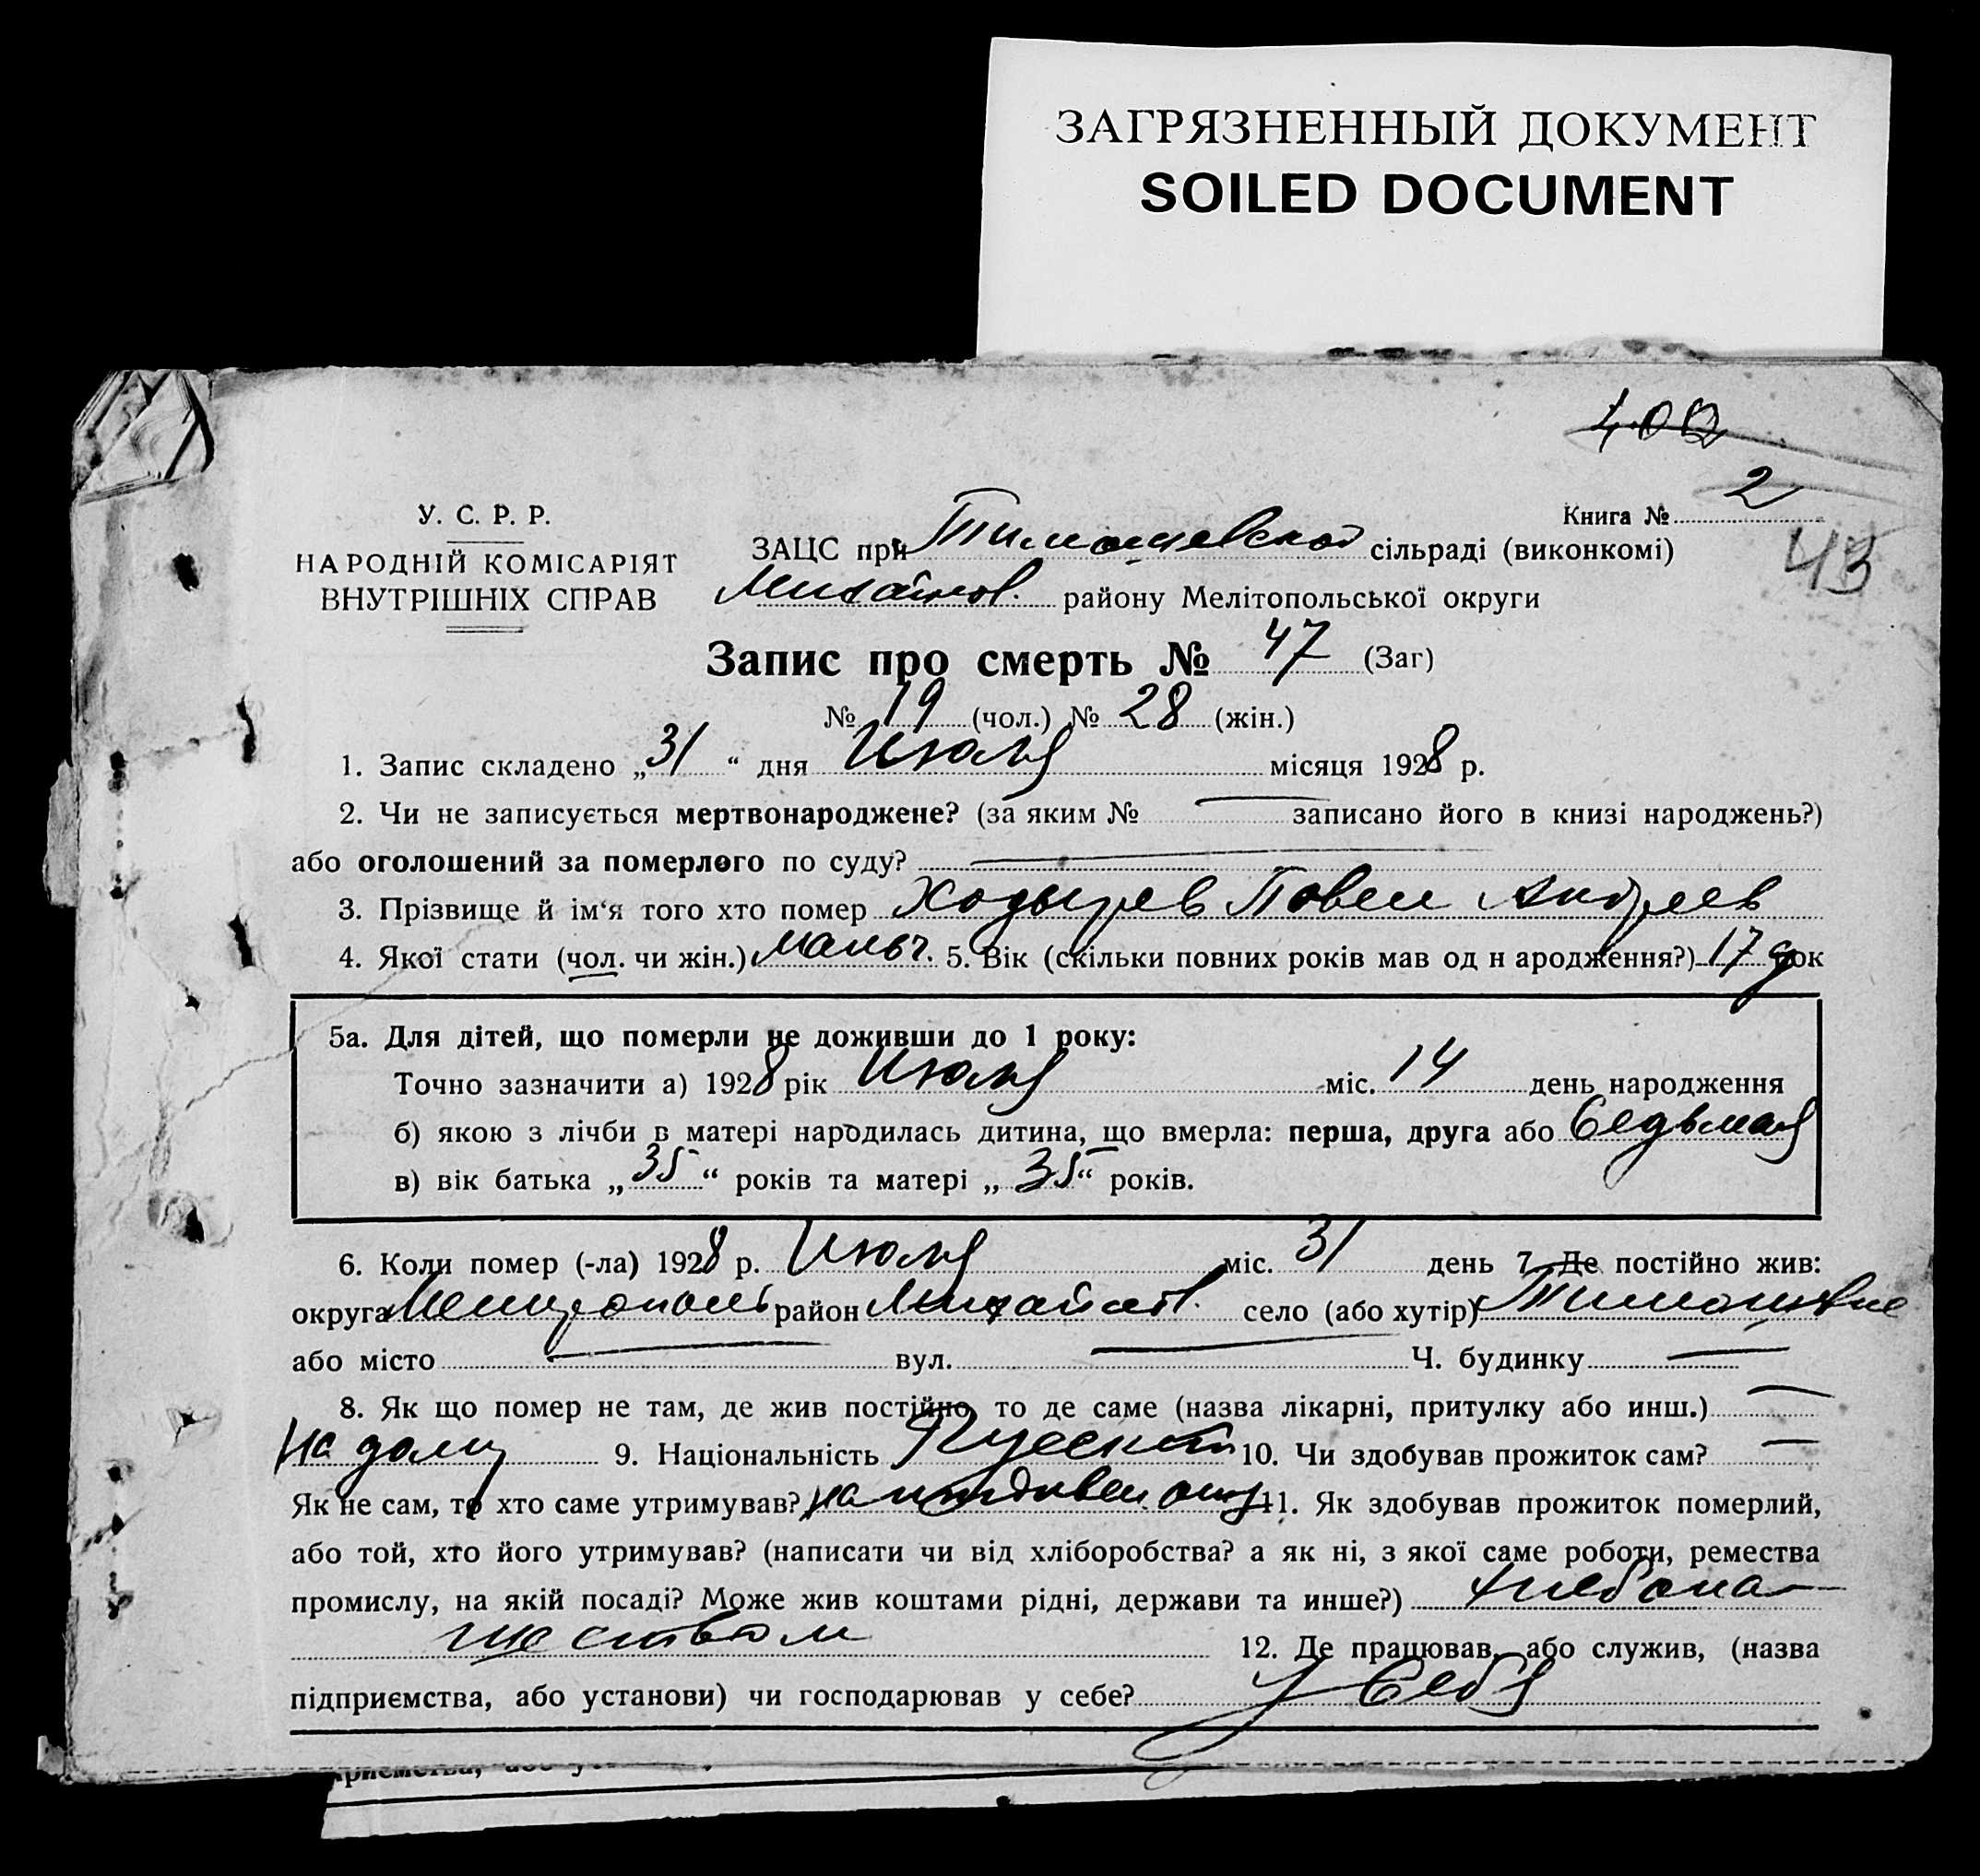 ЗАГРЯЗНЕННЫЙ ДОКУМЕНТ
SOILED DOCUMENT
400
Книга № 2
43
У. С. Р. Р.
НАРОДНІЙ КОМІСАРІЯТ
ВНУТРІШНІХ СПРАВ
ЗАЦС при Тимошевской сільраді (виконкомі)
Михайлов. району Мелітопольської округи
Запис про смерть № 47 (Заг)
№ 19 (чол.) № 28 (жін.)
1. Запис складено „31“ дня Июля місяця 1928 р.
2. Чи не записується мертвонароджене? (за яким № — записано його в книзі народжень?)
або оголошений за померлого по суду? —
3. Прізвище й ім'я того хто помер Ходырев Повел Андреев
4. Якої стати (чол. чи жін.) мальч. 5. Вік (скільки повних років мав од н ародження?) 17 д рок
5а. Для дітей, що померли не доживши до 1 року:
Точно зазначити а) 1928 рік Июля міс. 14 день народження
б) якою з лічби в матері народилась дитина, що вмерла: перша, друга або Седьмая
в) вік батька „35“ років та матері „35“ років.
6. Коли помер (-ла) 1928 р. Июля міс. 31 день 7. Де постійно жив:
округа Мелитополь район Михайлов. село (або хутір) Тимошевке
або місто — вул. — Ч. будинку —
8. Як що помер не там, де жив постійно, то де саме (назва лікарні, притулку або инш.) —
На дому 9. Національність Русский 10. Чи здобував прожиток сам? —
Як не сам, то хто саме утримував? на иждивен. отц 11. Як здобував прожиток померлий,
або той, хто його утримував? (написати чи від хліборобства? а як ні, з якої саме роботи, ремества
промислу, на якій посаді? Може жив коштами рідні, держави та инше?) хлебопа-
шеством 12. Де працював, або служив, (назва
підприємства, або установи) чи господарював у себе? у Себя